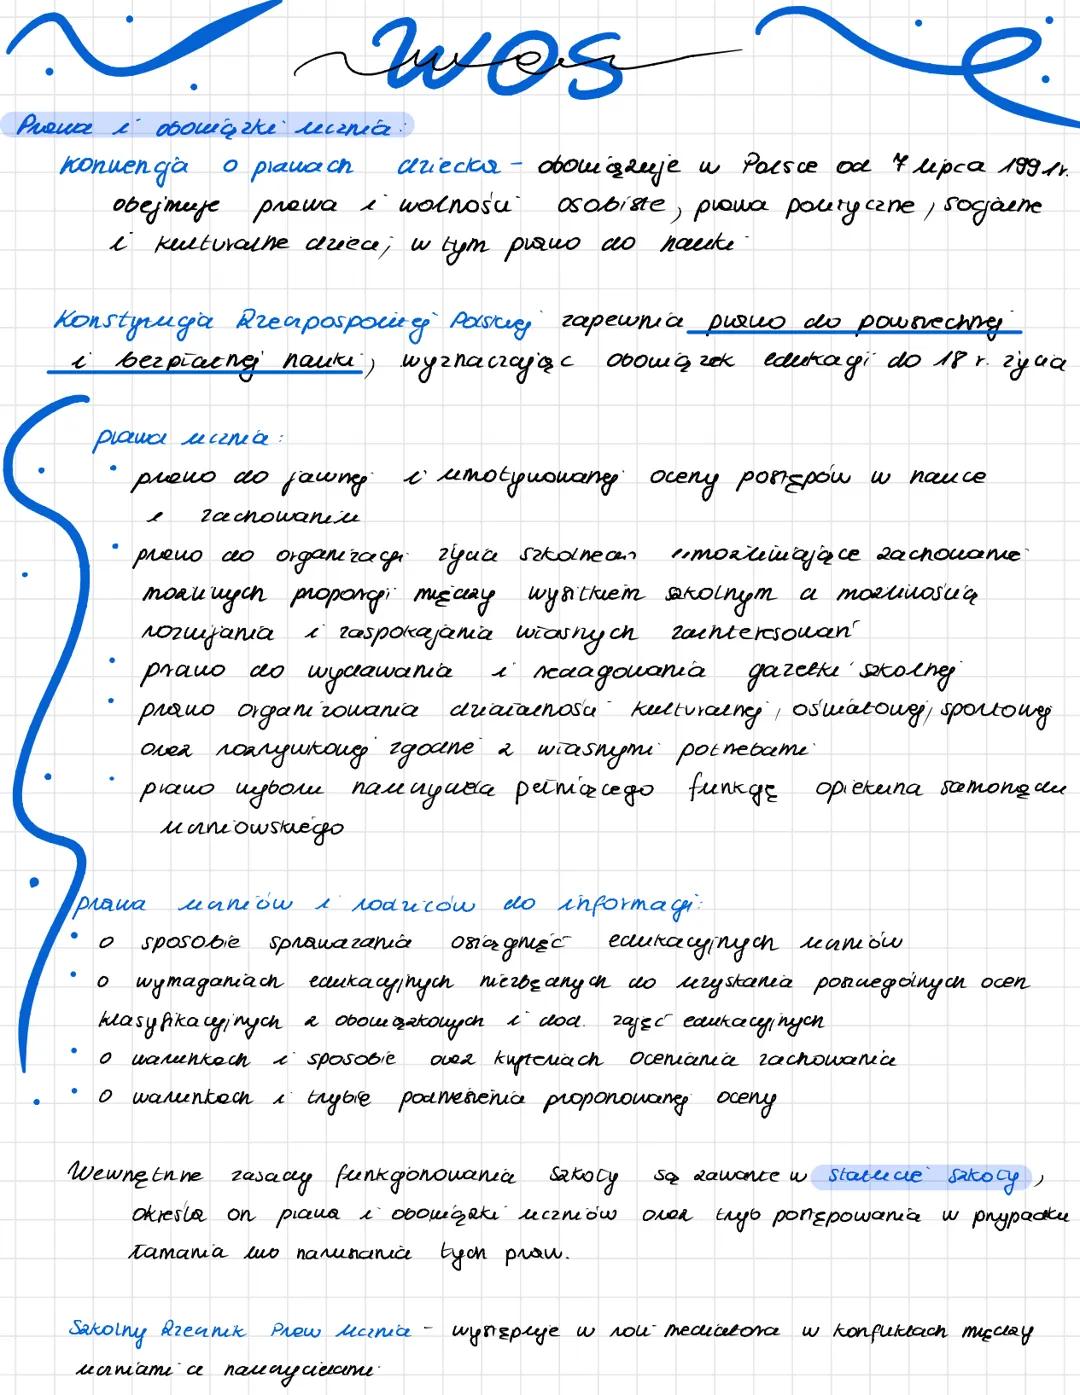 WOS
wos
Prawa i obowiązki ucznia:
Konwencja o prawach dziecka - obowiązuje w Polsce od 7 lipca 1991r.
obejmuje prawa i wolności osobiste, prawa polityczne, socjalne
i kulturalne dzieci, w tym prawo do nauki
Konstytucja Rzeczpospolitej Polskiej zapewnia prawo do powszechnej
i bezpłatnej nauki, wyznaczając obowiązek edukacji do 18 r. życia
prawa ucznia:
• prawo do jawnej i umotywowanej oceny postępów w nauce
i zachowaniu
• prawo do organizacji życia szkolnego umożliwiające zachowanie
możliwych proporcji między wysiłkiem szkolnym a możliwością
rozwijania i zaspokajania własnych zainteresowań
• prawo do wydawania i redagowania gazetki szkolnej
• prawo organizowania działalności kulturalnej, oświatowej, sportowej
oraz rozrywkowej zgodne z własnymi potrzebami
• prawo wyboru nauczyciela pełniącego funkcję opiekuna samorządu
uczniowskiego
prawa uczniów i rodziców do informacji:
• o sposobie sprawdzania osiągnięć edukacyjnych uczniów
• o wymaganiach edukacyjnych niezbędnych do uzyskania poszczególnych ocen
klasyfikacyjnych z obowiązkowych i dod. zajęć edukacyjnych
• o warunkach i sposobie oraz kryteriach oceniania zachowania
• o warunkach i trybie podniesienia proponowanej oceny
Wewnętrzne zasady funkcjonowania szkoły są zawarte w statucie szkoły,
określa on prawa i obowiązki uczniów oraz tryb postępowania w przypadku
łamania lub naruszania tych praw.
Szkolny Rzecznik Praw Ucznia - występuje w roli mediatora w konfliktach między
uczniami a nauczycielami